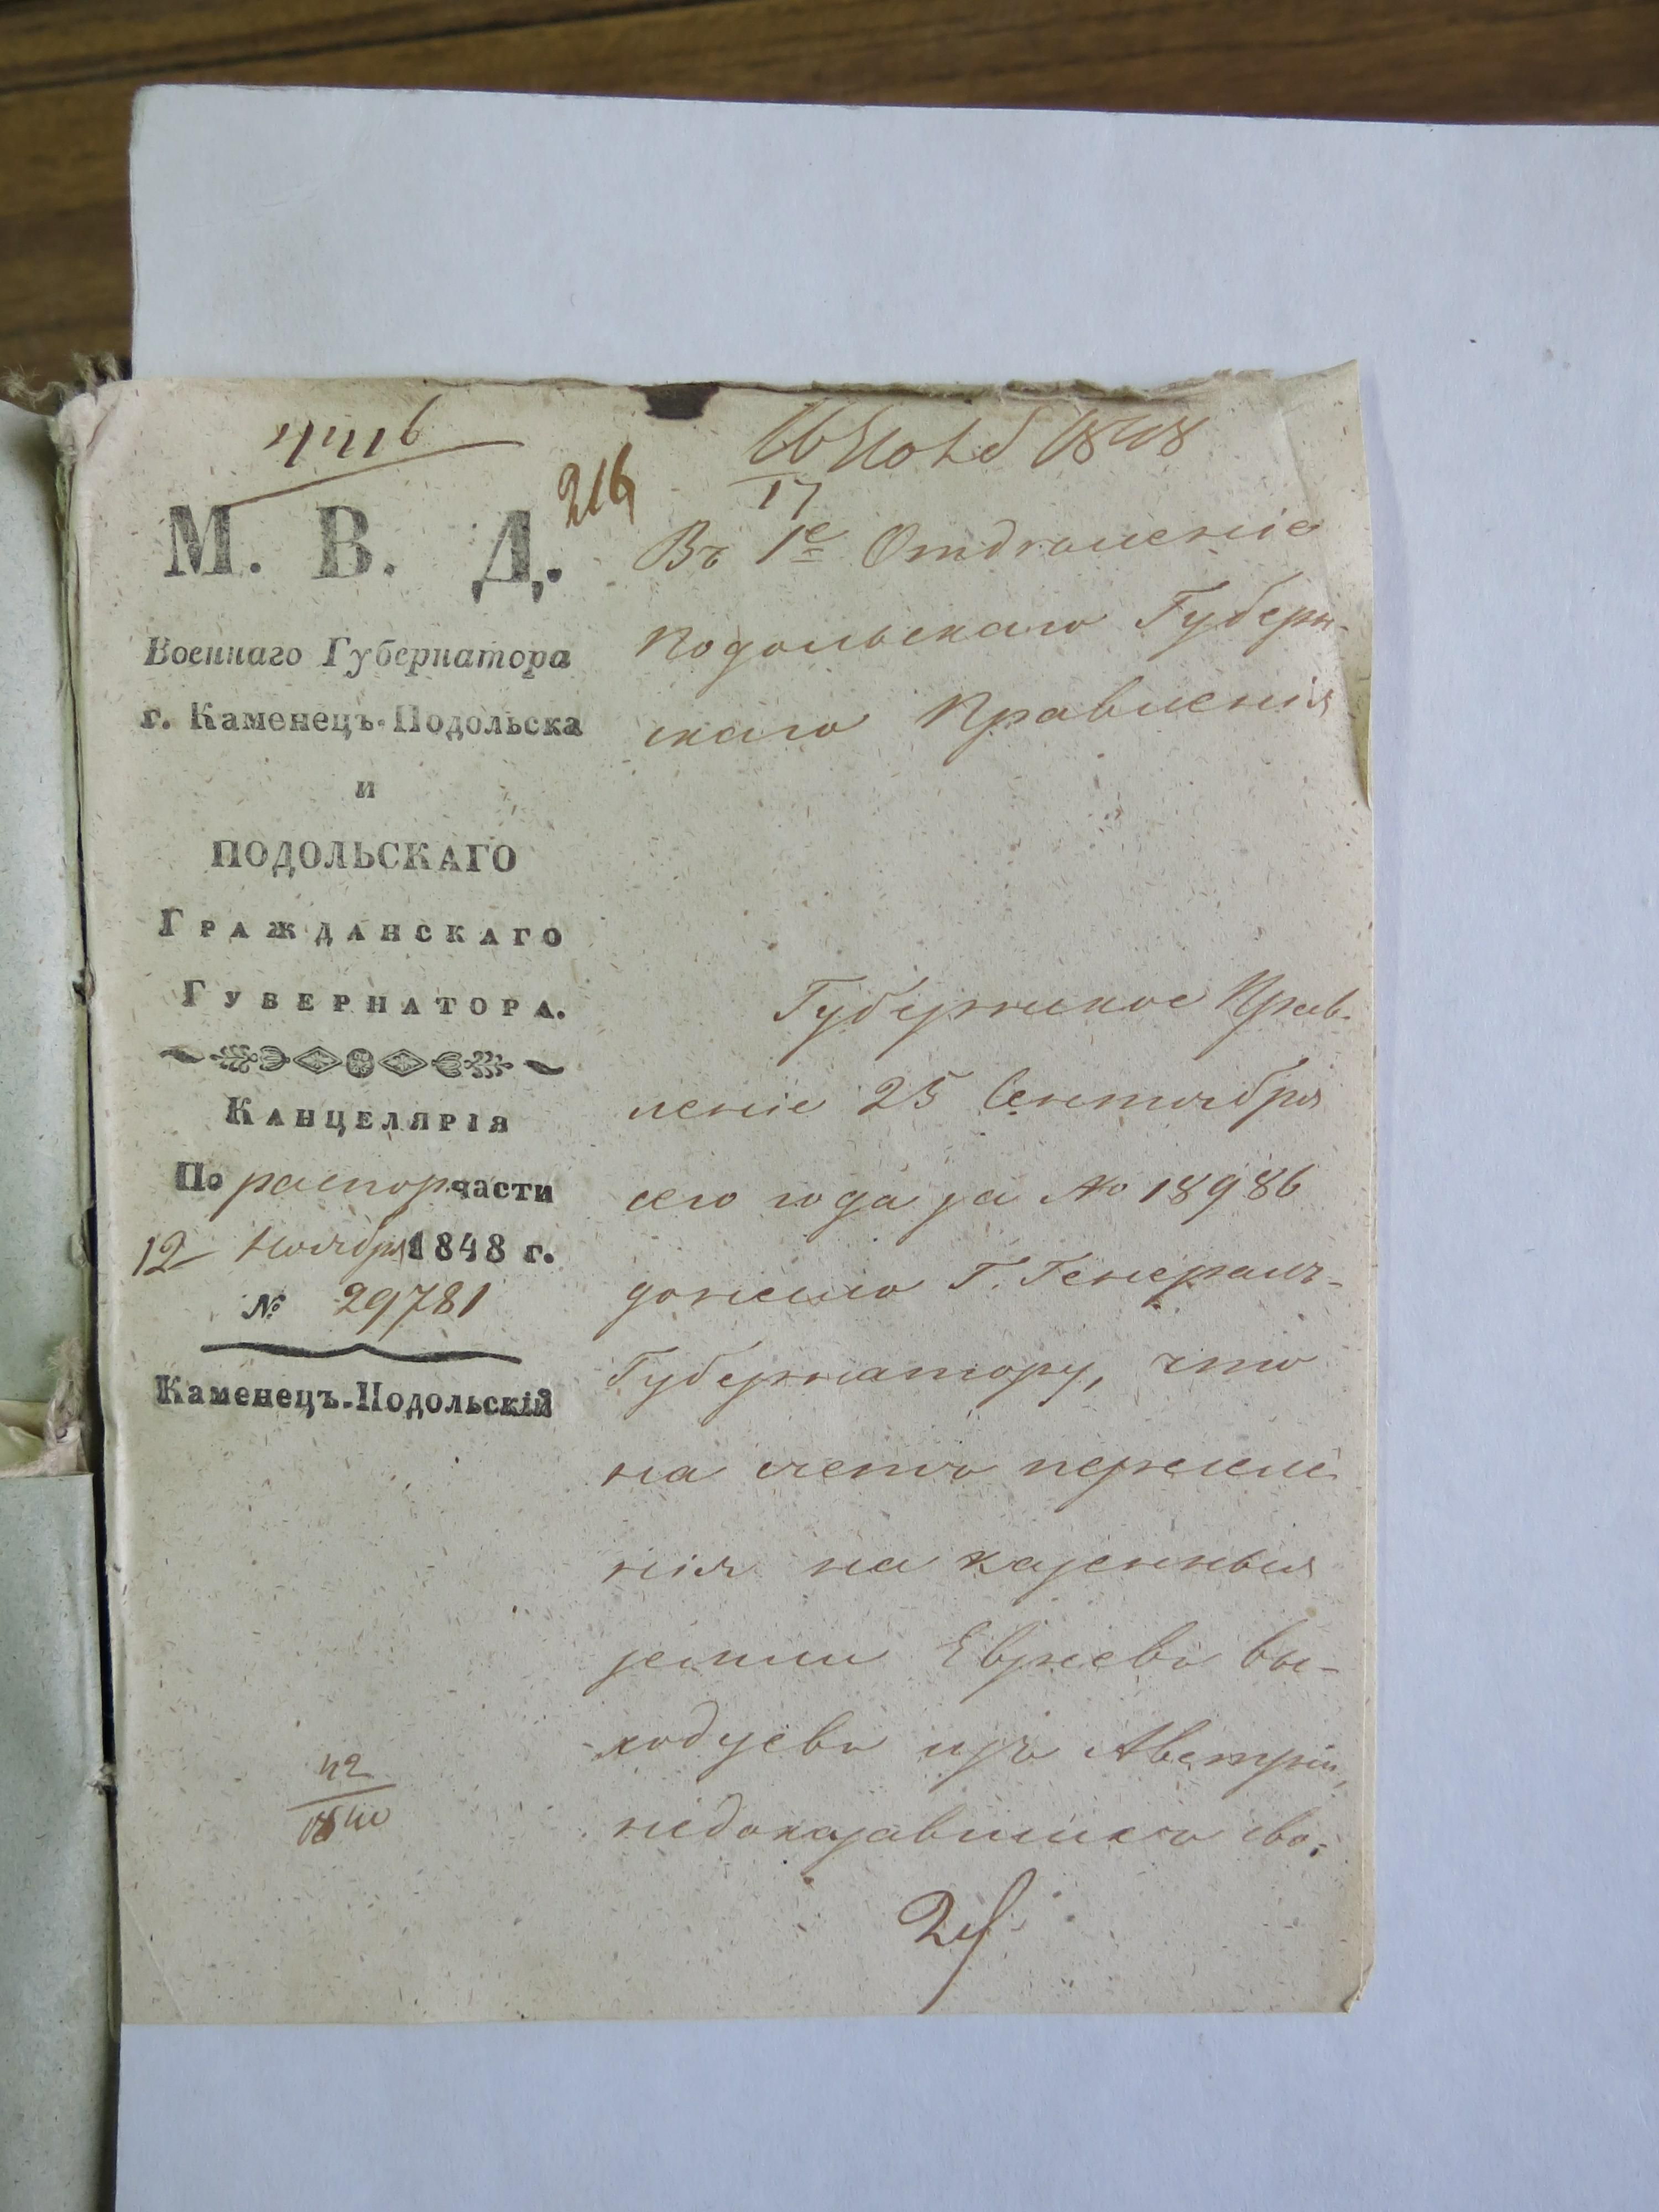 216
М. В. Д.
Военнаго Губернатора
г. Каменецъ-Подольска
и
ПОДОЛЬСКАГО
ГРАЖДАНСКАГО
ГУБЕРНАТОРА.
КАНЦЕЛЯРІЯ
По распор. части
12 Ноября 1848 г.
№ 29781
Каменецъ-Подольскій
42
1848
17
Въ 1е Отдѣленіе
Подольскаго Губерн-
скаго Правленія
Губернское Прав-
леніе 25 Сентября
сего года за № 18986
донесло Г. Генералъ-
Губернатору, что
на счетъ переселе
нія на казенныя
земли Евреевъ вы-
ходцевъ изъ Австріи,
недоказавшихъ сво-